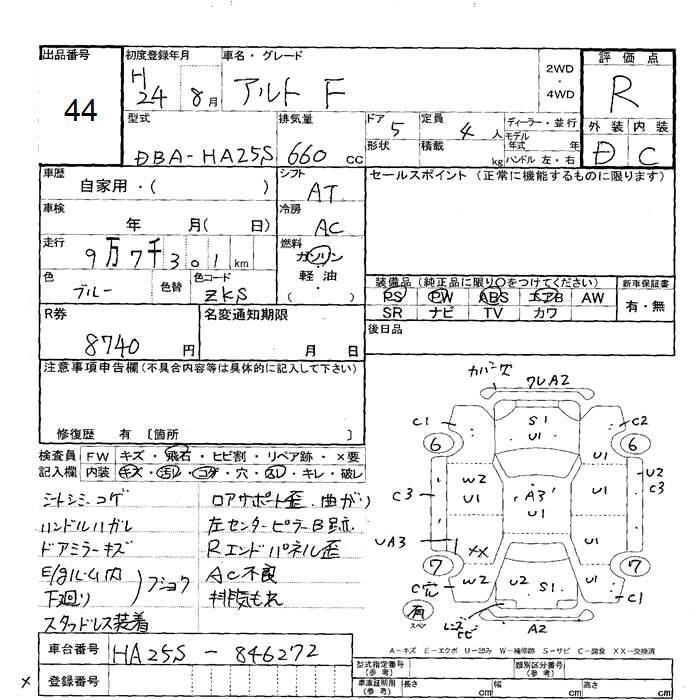 出品番号
44
初度登録年月
H 24 8月
車名・グレード
アルト F
2WD
・
4WD
評価点
R
外装 内装
D C
型式
DBA-HA25S
排気量
660 cc
ドア
5
形状
定員
4 人
積載
kg
ディーラー・並行
モデル年式 年
ハンドル 左・右
車歴
自家用・( )
シフト
AT
セールスポイント (正常に機能するものに限ります)
車検
年 月( 日)
冷房
AC
走行
9万7千301 km
燃料
ガソリン
軽油
( )
色
ブルー
色替
色コード
ZKS
装備品 (純正品に限り○をつけてください)
PS PW ABS エアB AW
SR ナビ TV カワ
新車保証書
有・無
R券
8740 円
名変通知期限
月 日
後日品
注意事項申告欄(不具合内容等は具体的に記入して下さい)
修復歴 有 〔箇所 〕
検査員
記入欄
FW キズ・飛石・ヒビ割・リペア跡・×要
内装 キズ・汚れ・コゲ・穴・スレ・キレ・破レ
シトシミ コゲ
ハンドルハガレ
ドアミラーキズ
E/gルーム内
下廻り
フショク
スタッドレス装着
ロアサポート歪、曲がり
左センターピラーB跡
Rエンドパネル歪
AC不良
排気もれ
カバーキズ
ワレA2
C1
S1
U1
C2
6
6
W2
U1
A3
U1
U1
U2
C3
C3
UA3
XX
U1
U1
7
7
W2
U2
S1
C穴
U1
C1
有
スペア
レンズヒビ
A2
A-キズ E-エクボ U-凹み W-補修跡 S-サビ C-腐食 XX-交換済
車台番号
HA25S - 846272
登録番号
×
型式指定番号
(参考)
類別区分番号
(参考)
車庫証明用
(参考)
長さ cm
幅 cm
高さ cm